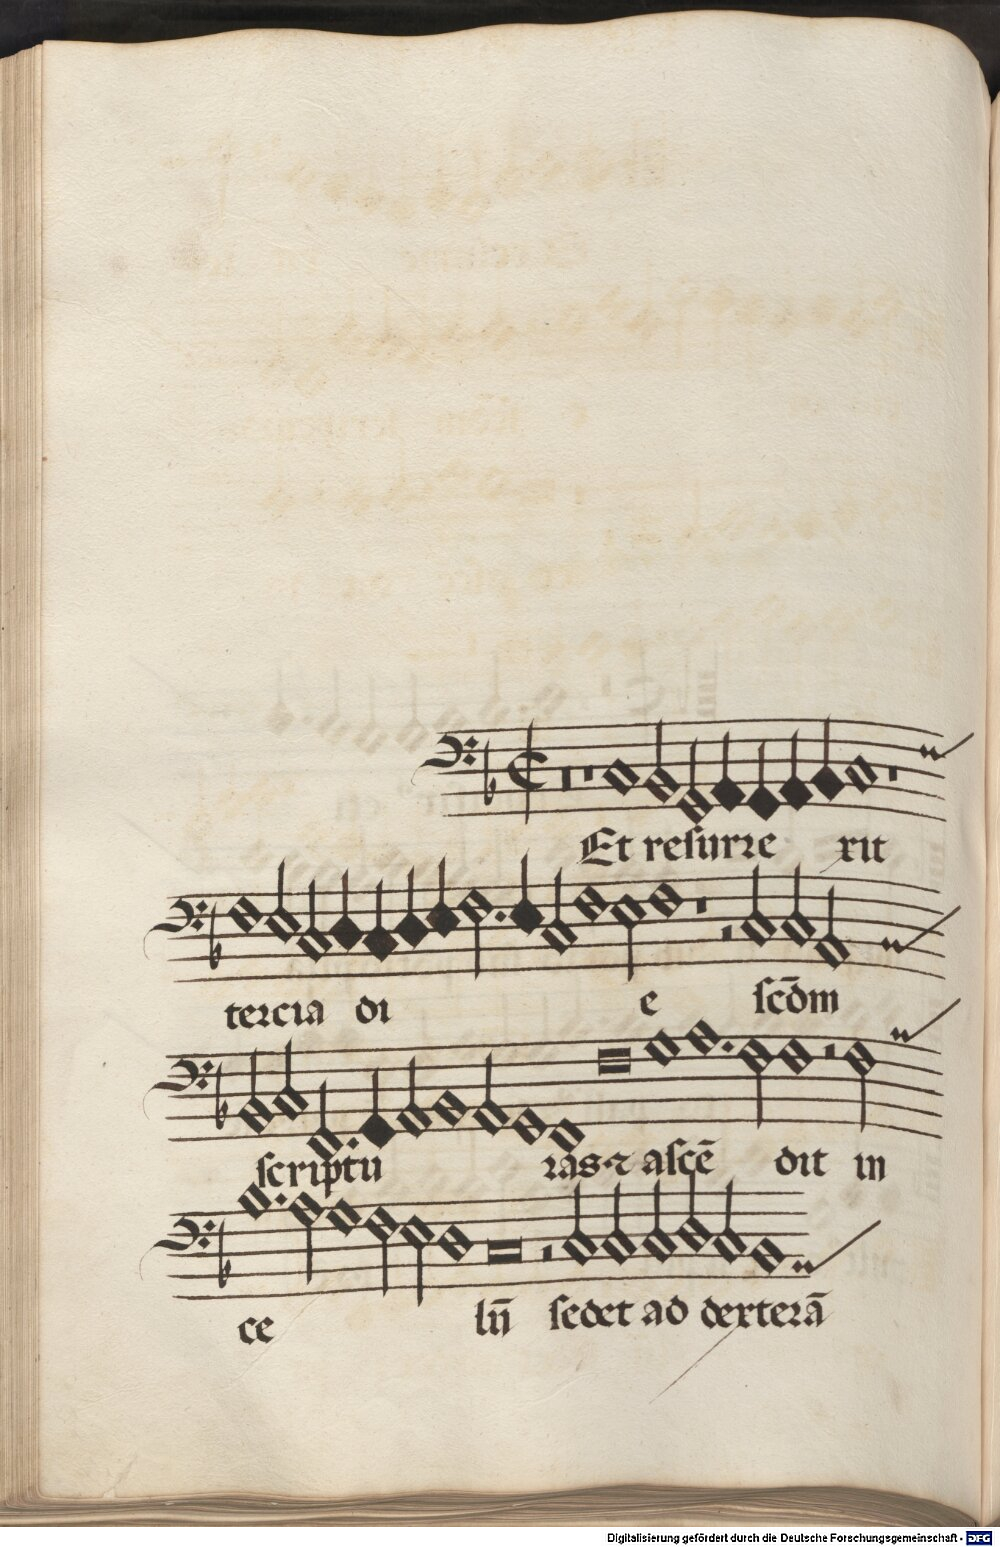 Et resurre xit
tercia di e scd̄m
scriptu ras ⁊ ascē dit in
ce lū sedet ad dexterā
Digitalisierung gefördert durch die Deutsche Forschungsgemeinschaft - DFG